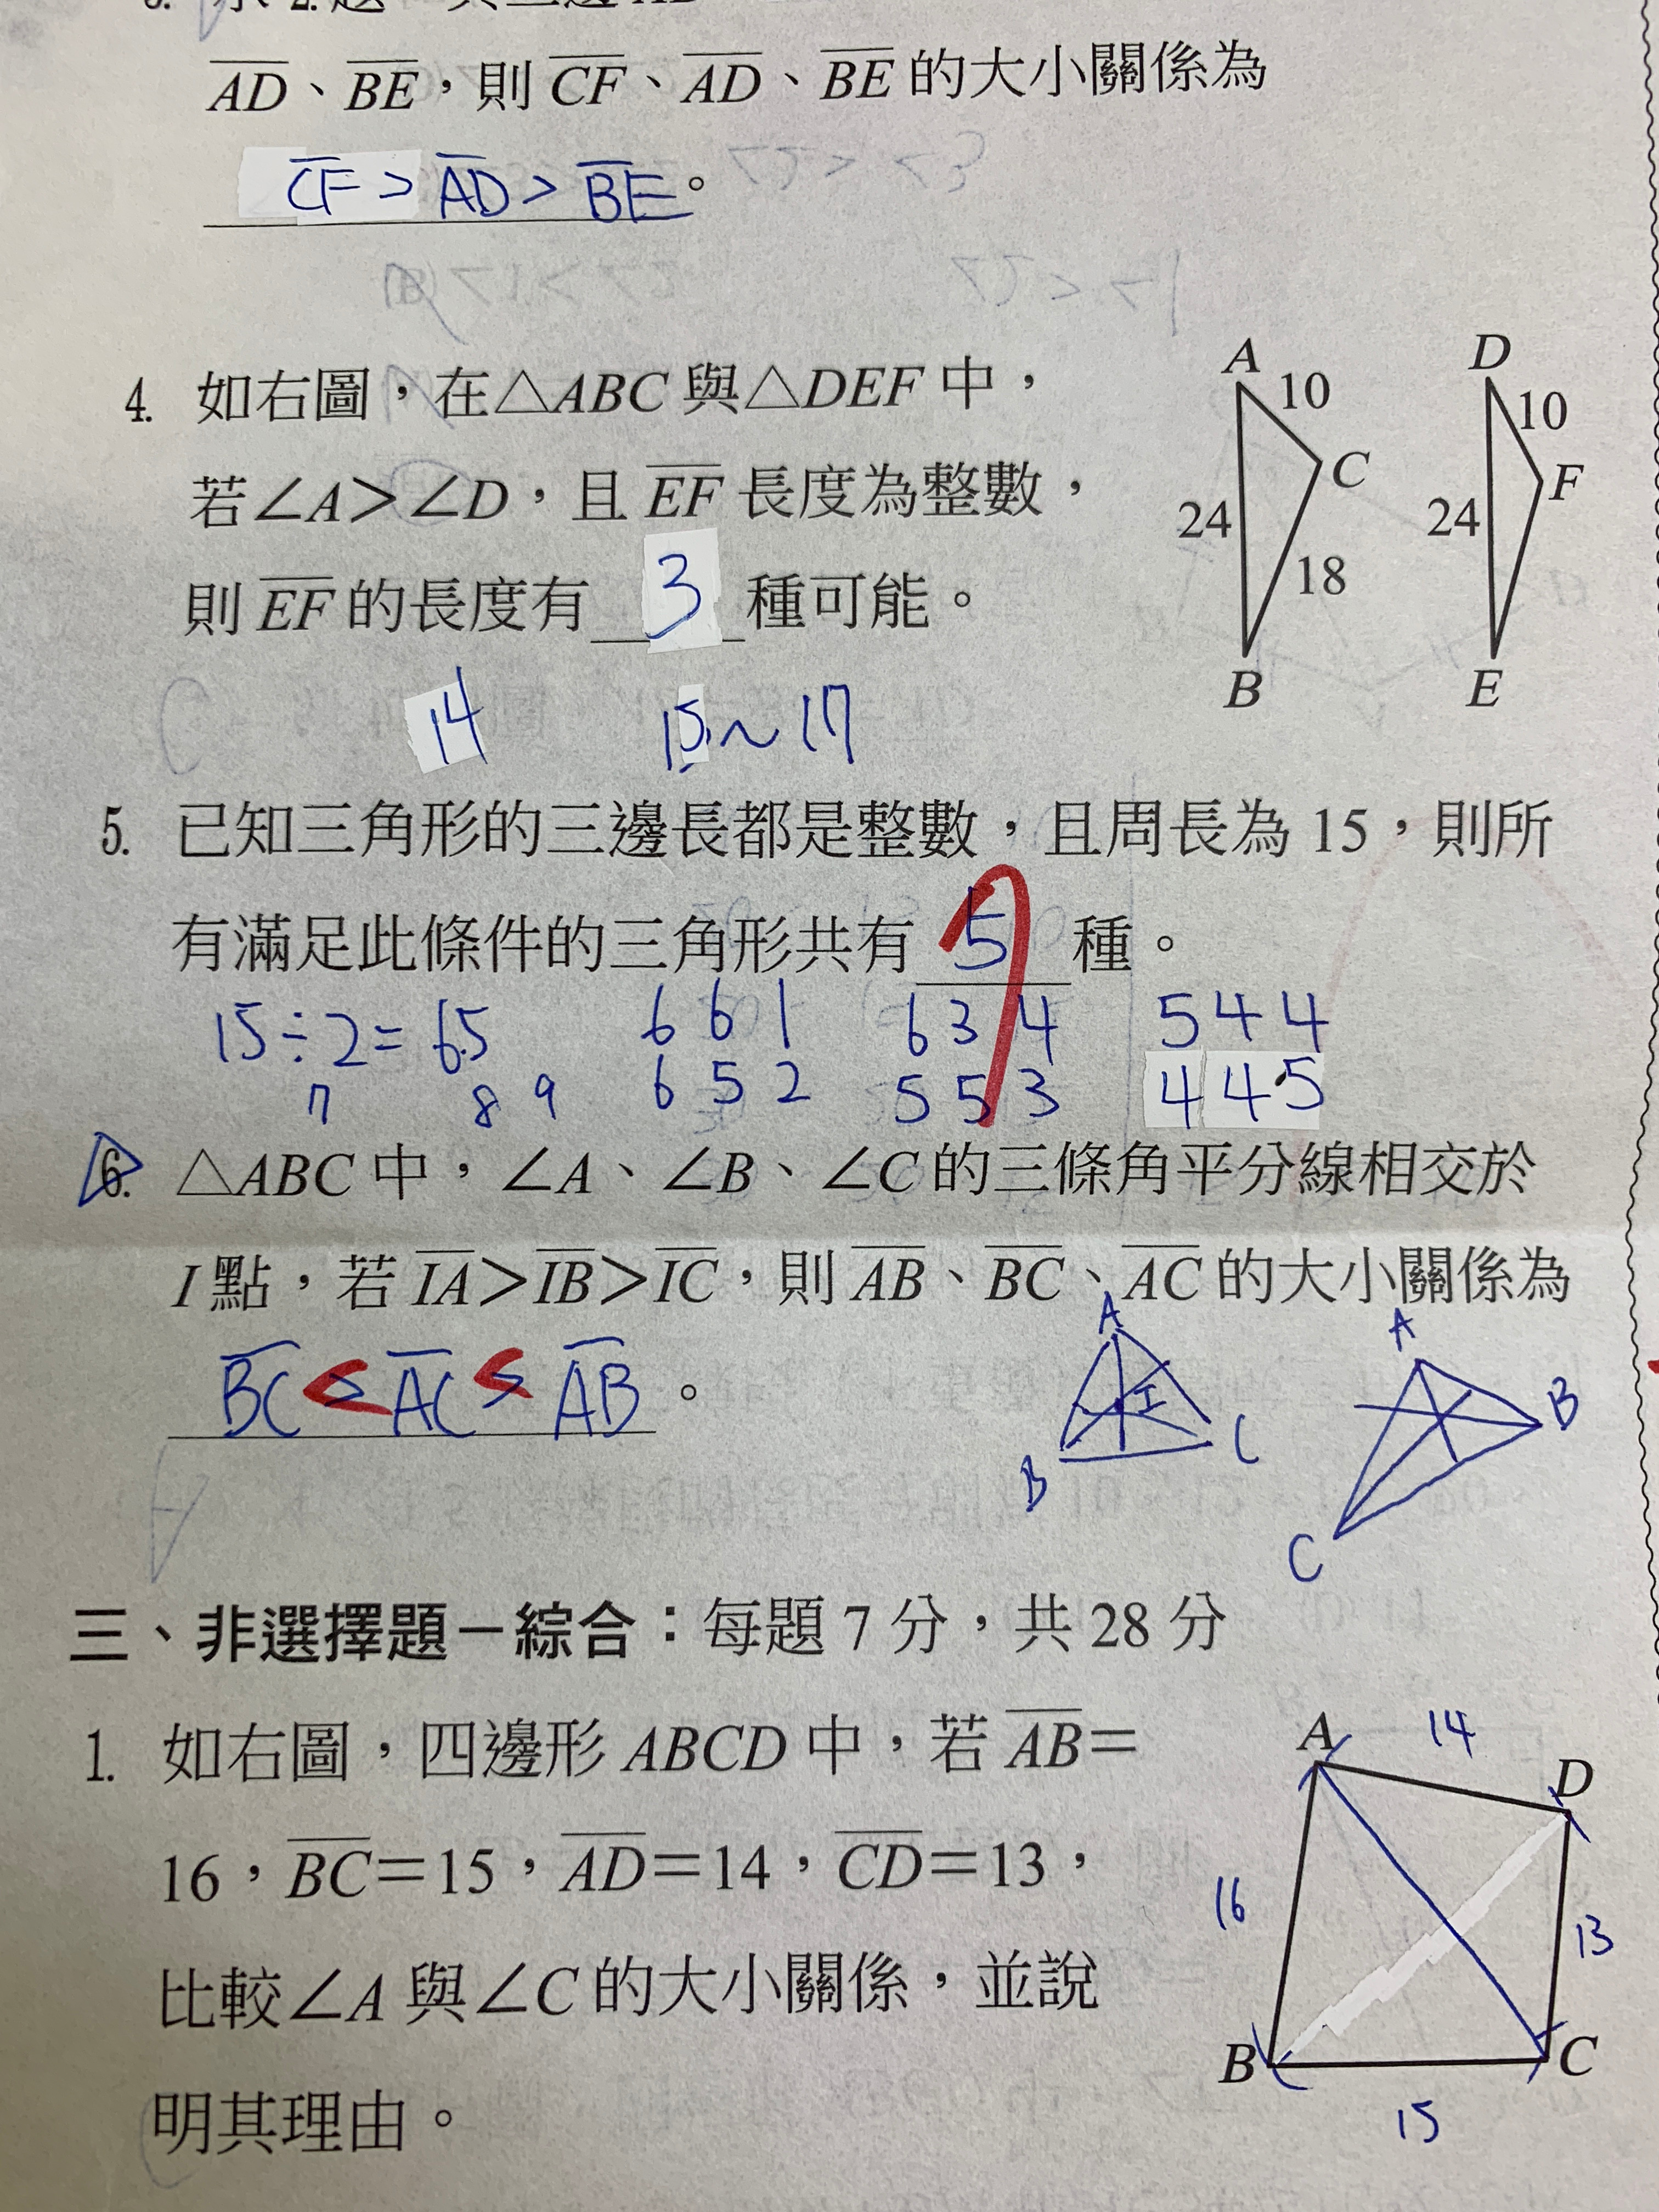 AD、BE，則 CF、AD、BE 的大小關係為
CF > AD > BE。
4. 如右圖，在△ABC 與△DEF 中，
若∠A＞∠D，且 EF 長度為整數，
則 EF 的長度有 3 種可能。
14 15～17
A 10 C 24 18 B
D 10 F 24 E
5. 已知三角形的三邊長都是整數，且周長為 15，則所
有滿足此條件的三角形共有 5 種。
15÷2= 6.5 6 6 1 6 3 4 5 4 4
7 8 9 6 5 2 5 5 3 4 4 5
6. △ABC 中，∠A、∠B、∠C 的三條角平分線相交於
I 點，若 IA＞IB＞IC，則 AB、BC、AC 的大小關係為
BC < AC < AB。
A I B C
A B C
三、非選擇題－綜合：每題 7 分，共 28 分
1. 如右圖，四邊形 ABCD 中，若 AB＝
16，BC＝15，AD＝14，CD＝13，
比較∠A 與∠C 的大小關係，並說
明其理由。
A 14 D
16 13
B C
15